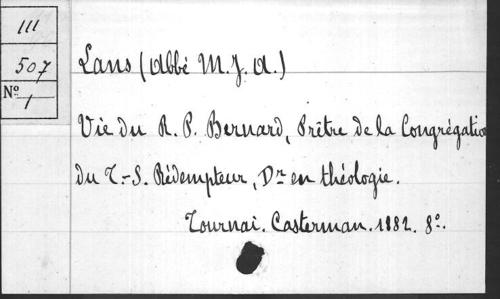 III
507
Nº 1
Lans (Abbé M. J. A.)
Vie du R. P. Bernard, Prêtre de la Congrégation
du T.-S. Rédempteur, Dr en théologie.
Tournai. Casterman. 1882. 8º.